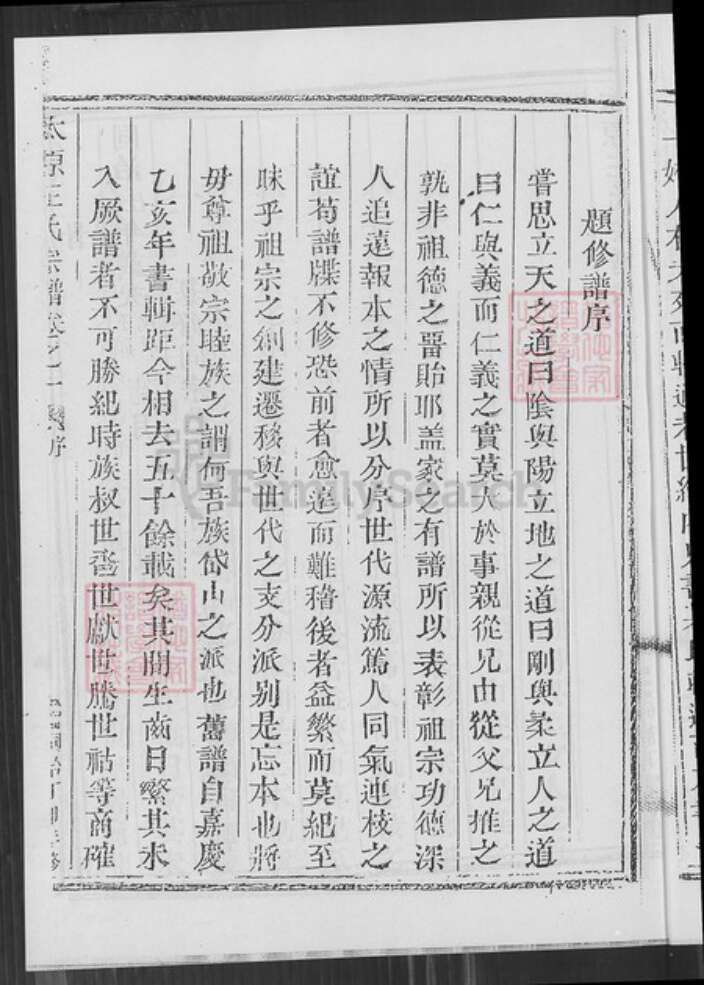 題修譜序
嘗思立天之道曰陰與陽立地之道曰剛與柔立人之道
曰仁與義而仁義之實莫大於事親從兄由從父兄推之
孰非祖德之畱貽耶盖家之有譜所以表彰祖宗功德深
人追遠報本之情所以分序世代源流篤人同氣連枝之
誼苟譜牒不修恐前者愈遠而難稽後者益繁而莫紀至
昧乎祖宗之創建遷移與世代之支分派别是忘本也將
毋尊祖敬宗睦族之謂何吾族岱山之派也舊譜自嘉慶
乙亥年書輯距今相去五十餘載矣其間生齒日繁其未
入厥譜者不可勝紀時族叔世喬世獻世騰世祜等商確
太原王氏宗譜卷之一 序
同治丁卯
FamilySearch